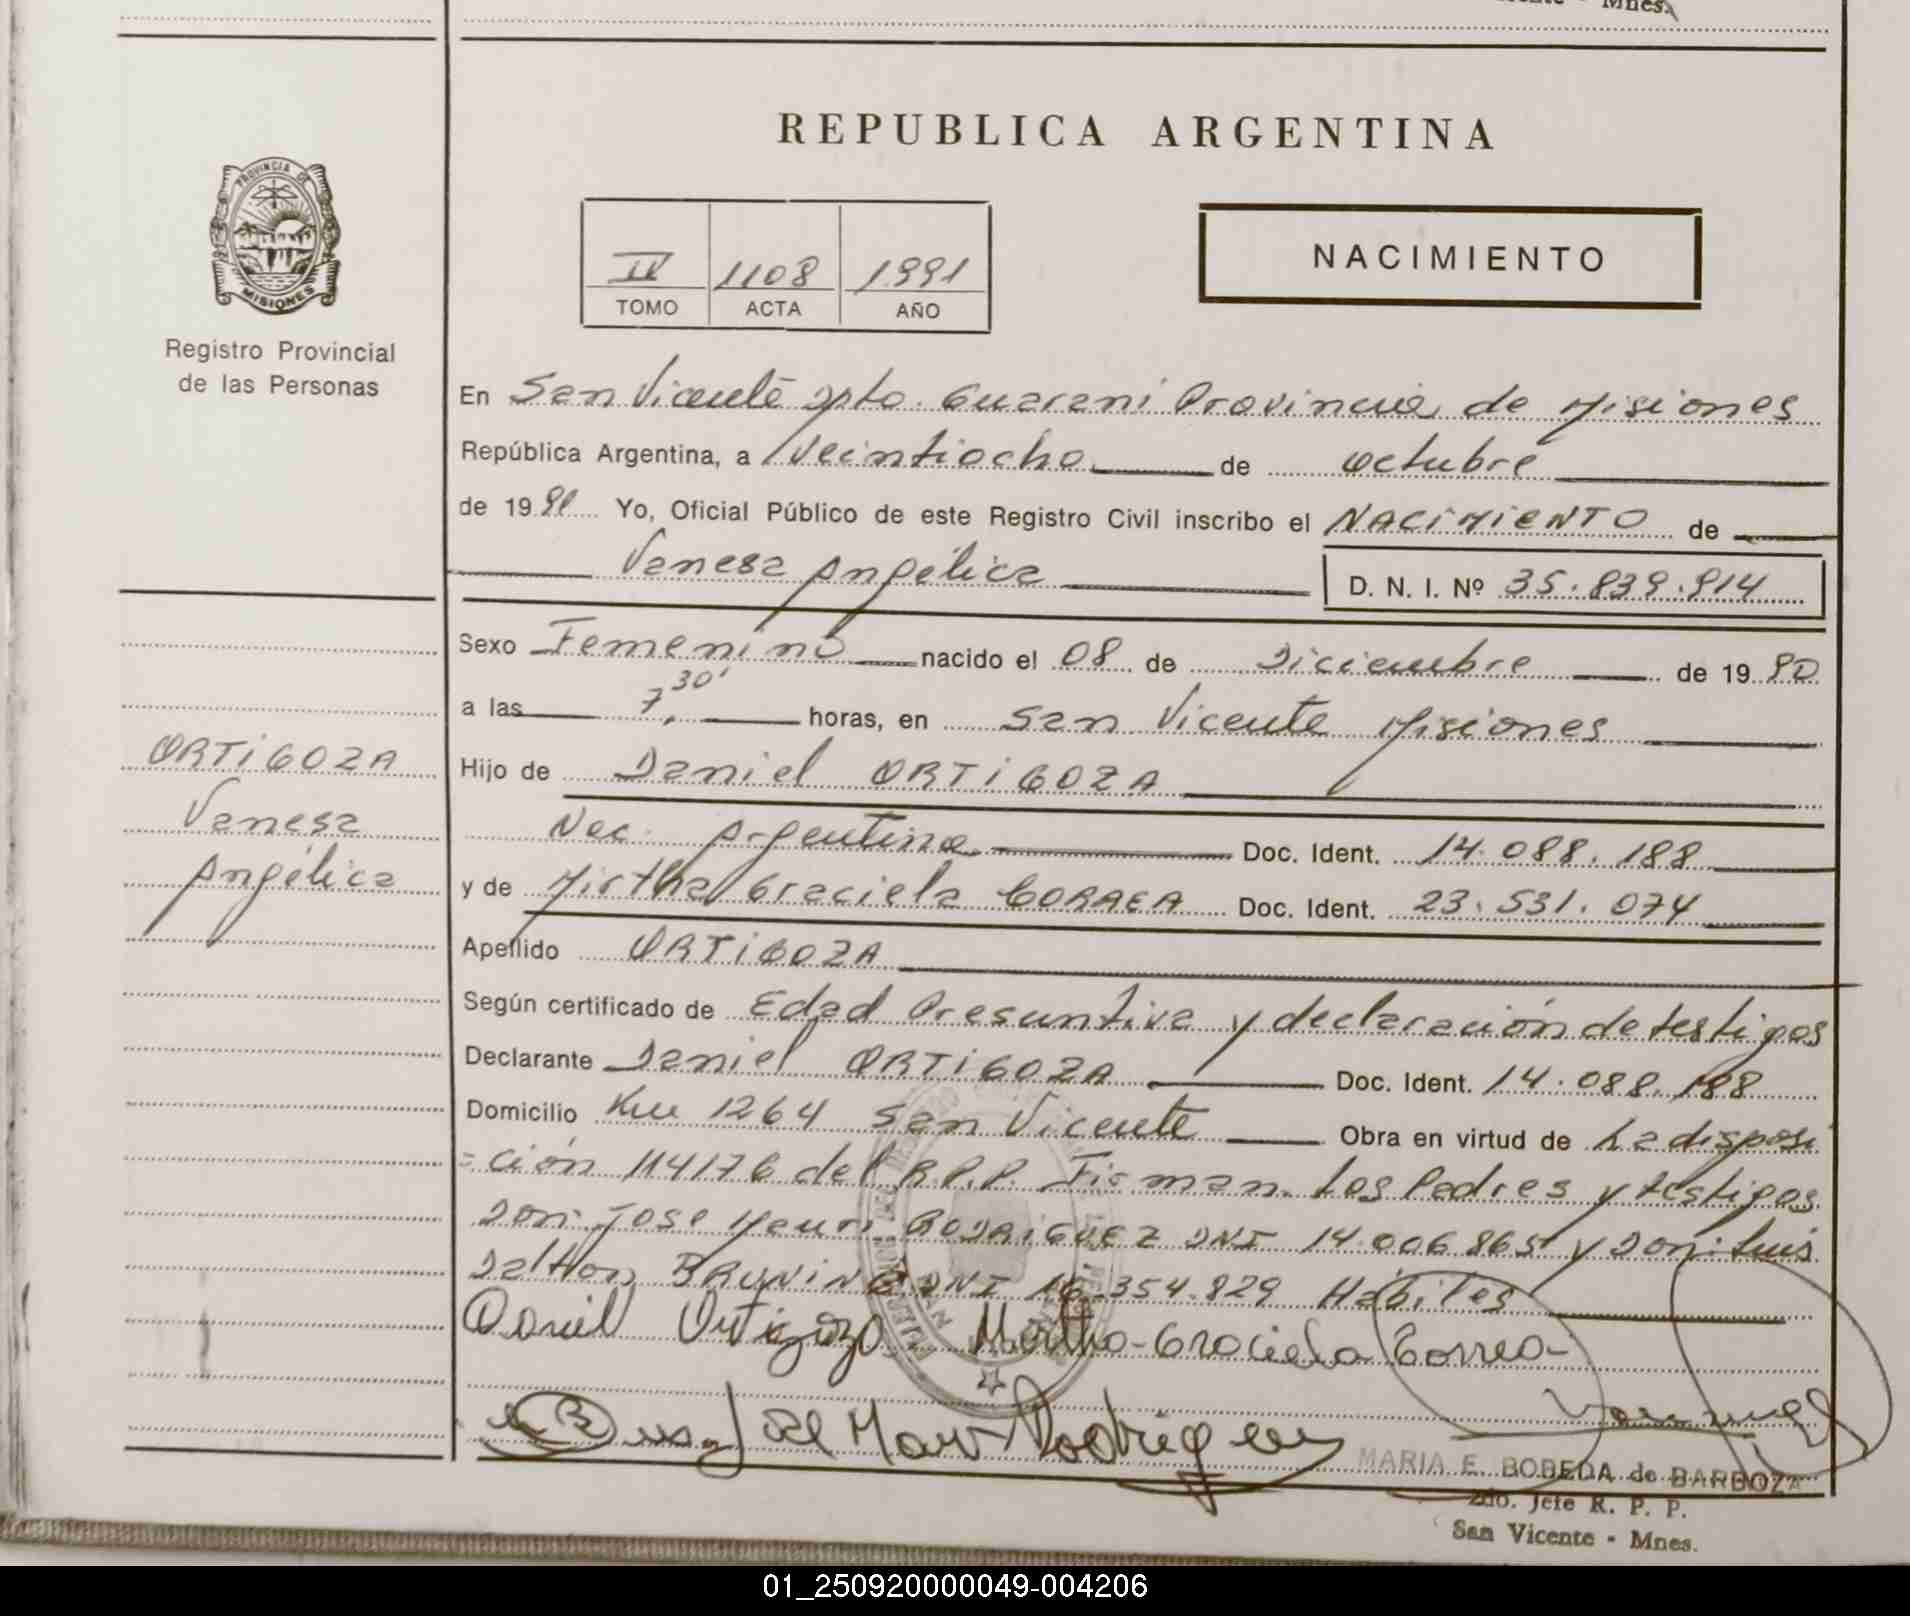 Mnes.
REPUBLICA ARGENTINA
PROVINCIA DE
MISIONES
Registro Provincial
de las Personas
IV 1108 1991
TOMO ACTA AÑO
NACIMIENTO
En San Vicente Dpto. Guaraní Provincia de Misiones
República Argentina, a Veintiocho de octubre
de 1991 Yo, Oficial Público de este Registro Civil inscribo el NACIMIENTO de
Vanesa Angélica
D. N. I. Nº 35.839.914
Sexo Femenino nacido el 08 de Diciembre de 1990
a las 7,30' horas, en San Vicente Misiones
Hijo de Daniel ORTIGOZA
Nac. Argentina Doc. Ident. 14.088.188
y de Mirtha Graciela CORREA Doc. Ident. 23.531.074
Apellido ORTIGOZA
ORTIGOZA
Vanesa
Angélica
Según certificado de Edad Presuntiva y declaración de testigos
Declarante Daniel ORTIGOZA Doc. Ident. 14.088.188
Domicilio Km 1264 San Vicente Obra en virtud de La disposi
=ción 114176 del R.P.P. Firman Los Padres y testigos
Don: Jose RODRIGUEZ DNI 14.006.865 y Don: Luis
Dalton DNI 16.354.829 Hábiles
Daniel Ortigoza Mirtha-Graciela Correa-
Rodriguez
MARIA E. BOBEDA de BARBOZA
2do. Jefe R. P. P.
San Vicente - Mnes.
01_250920000049-004206